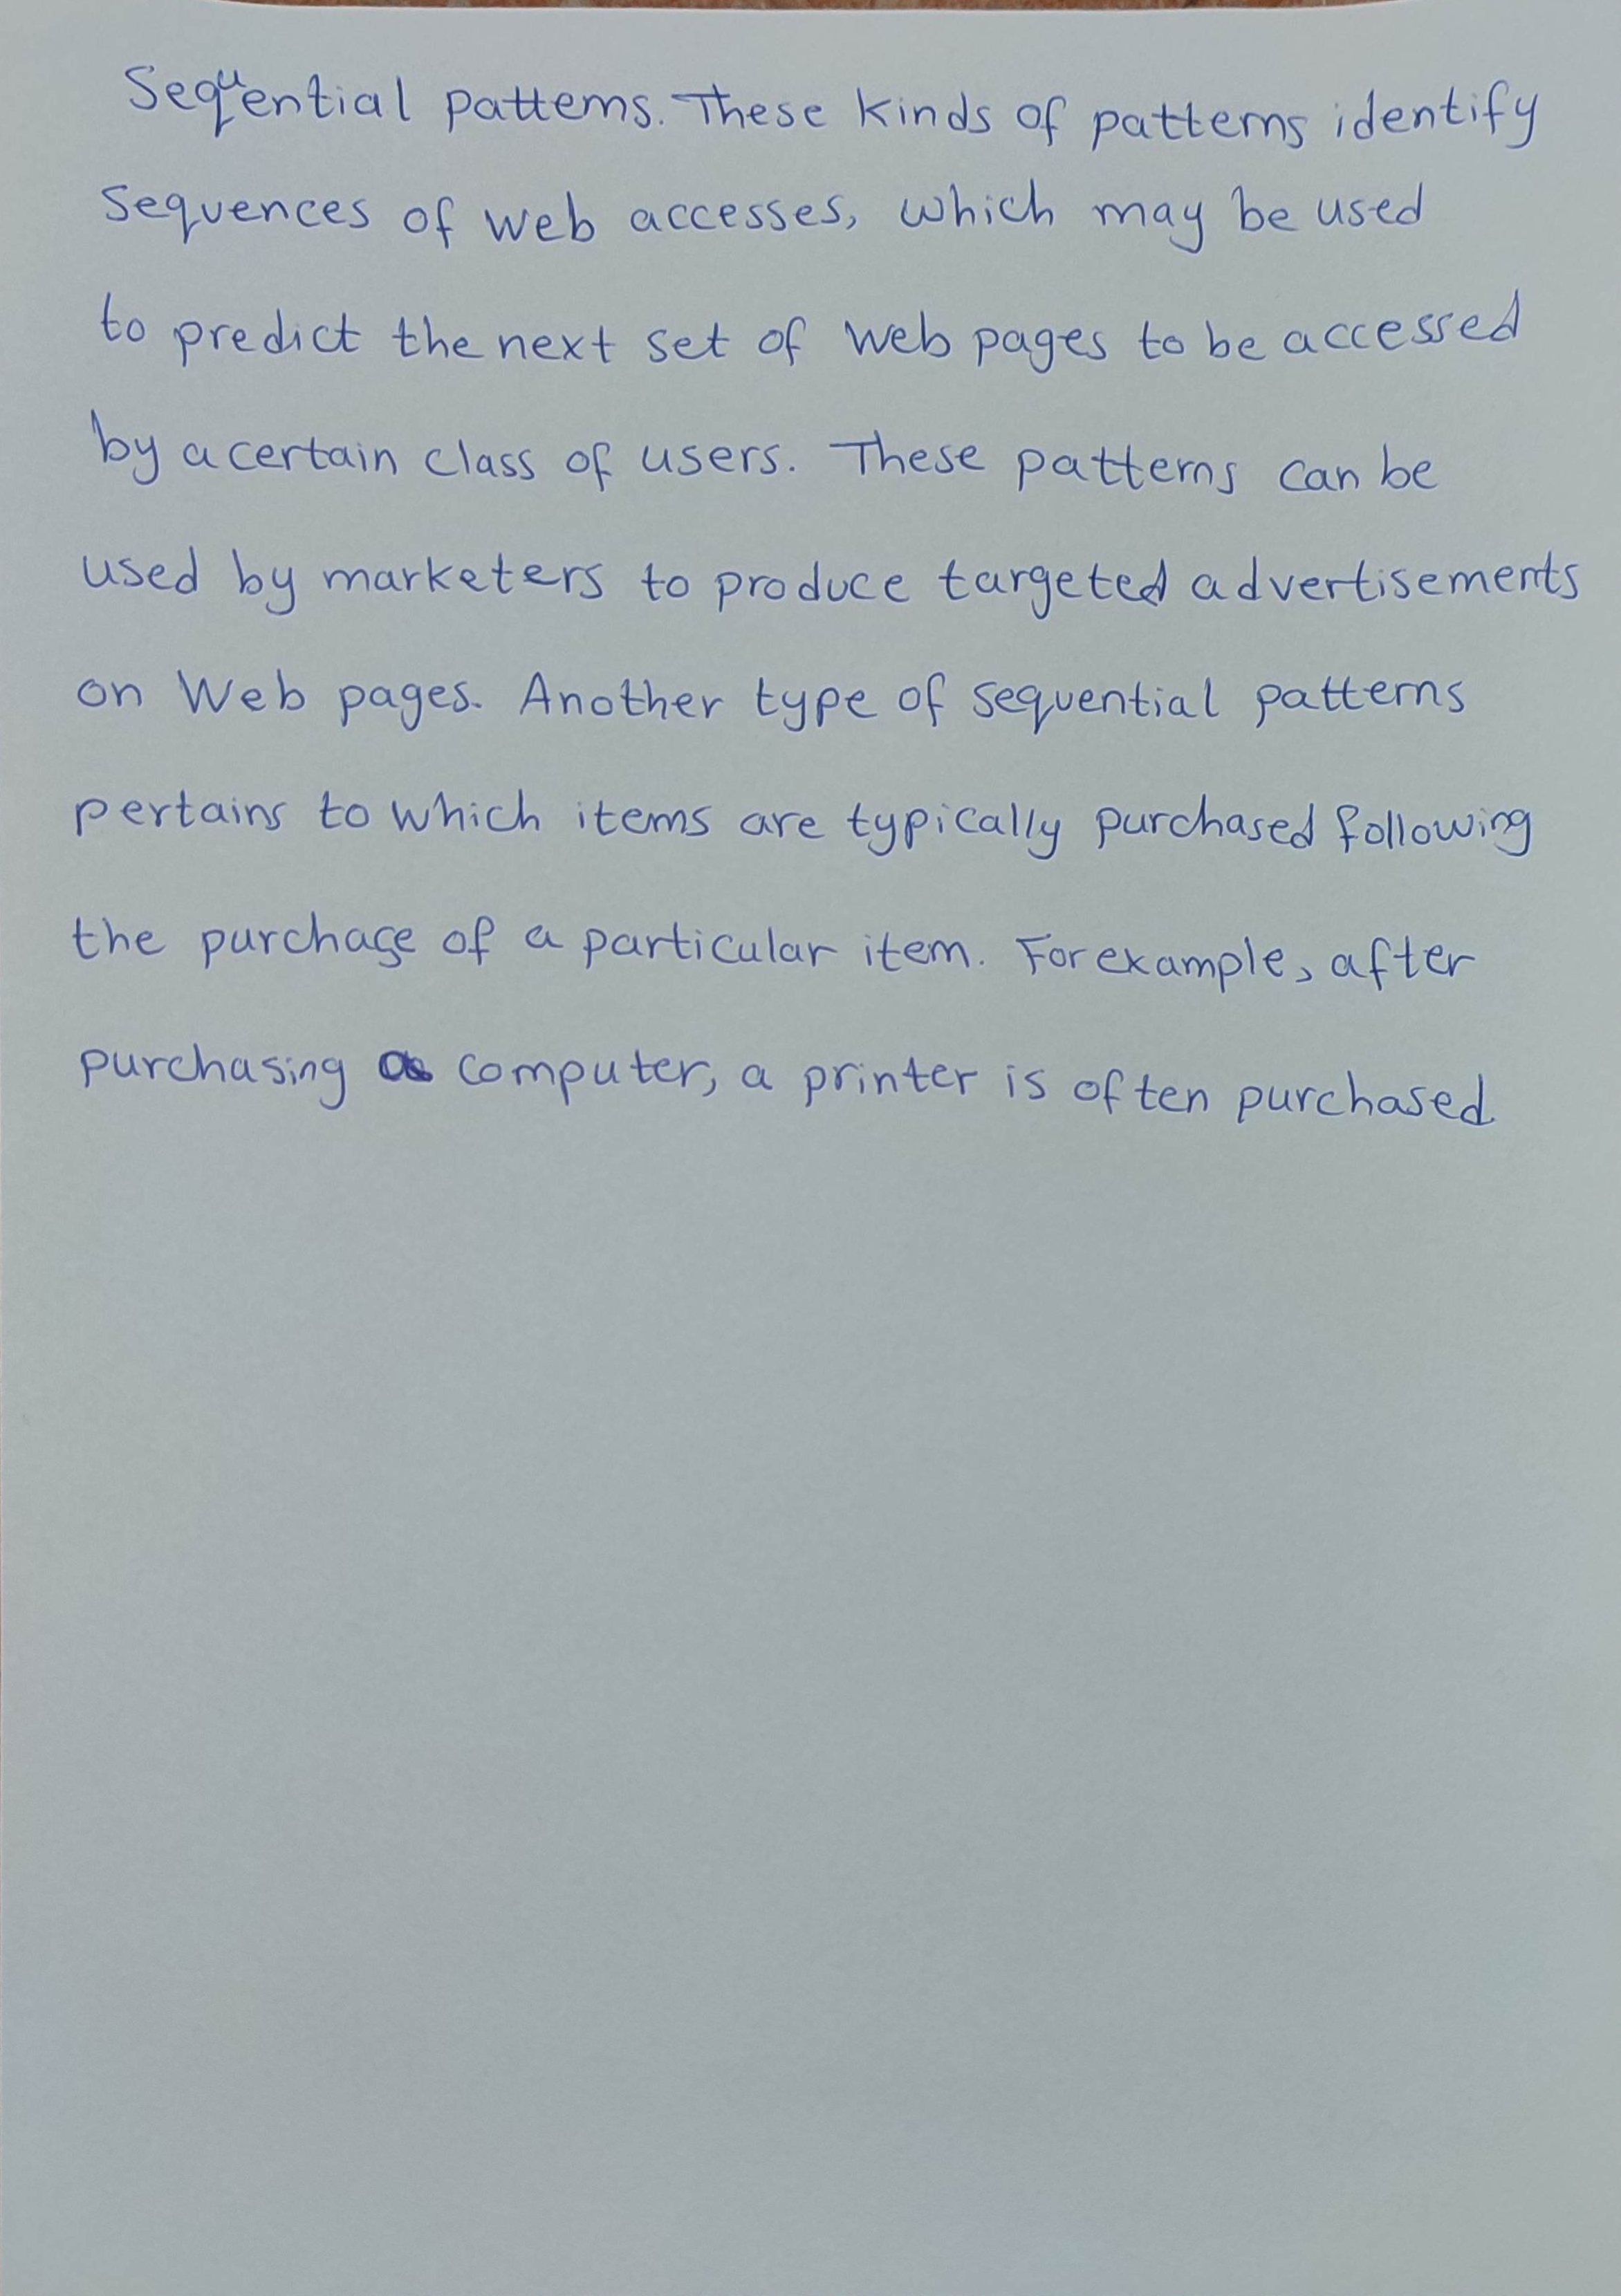 Sequential patterns. These kinds of patterns identify
sequences of web accesses, which may be used
to predict the next set of web pages to be accessed
by a certain class of users. These patterns can be
used by marketers to produce targeted advertisements
on Web pages. Another type of sequential patterns
pertains to which items are typically purchased following
the purchase of a particular item. For example, after
purchasing a computer, a printer is often purchased.